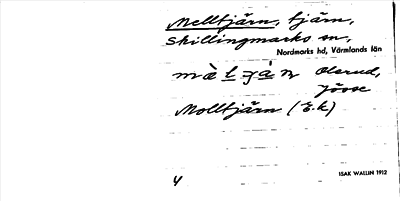 Melltjärn, tjärn,
Skillingmarks sn,
Nordmarks hd, Värmlands län
Olerud,
Jösse
Molltjärn (E.k)
4
ISAK WALLIN 1912